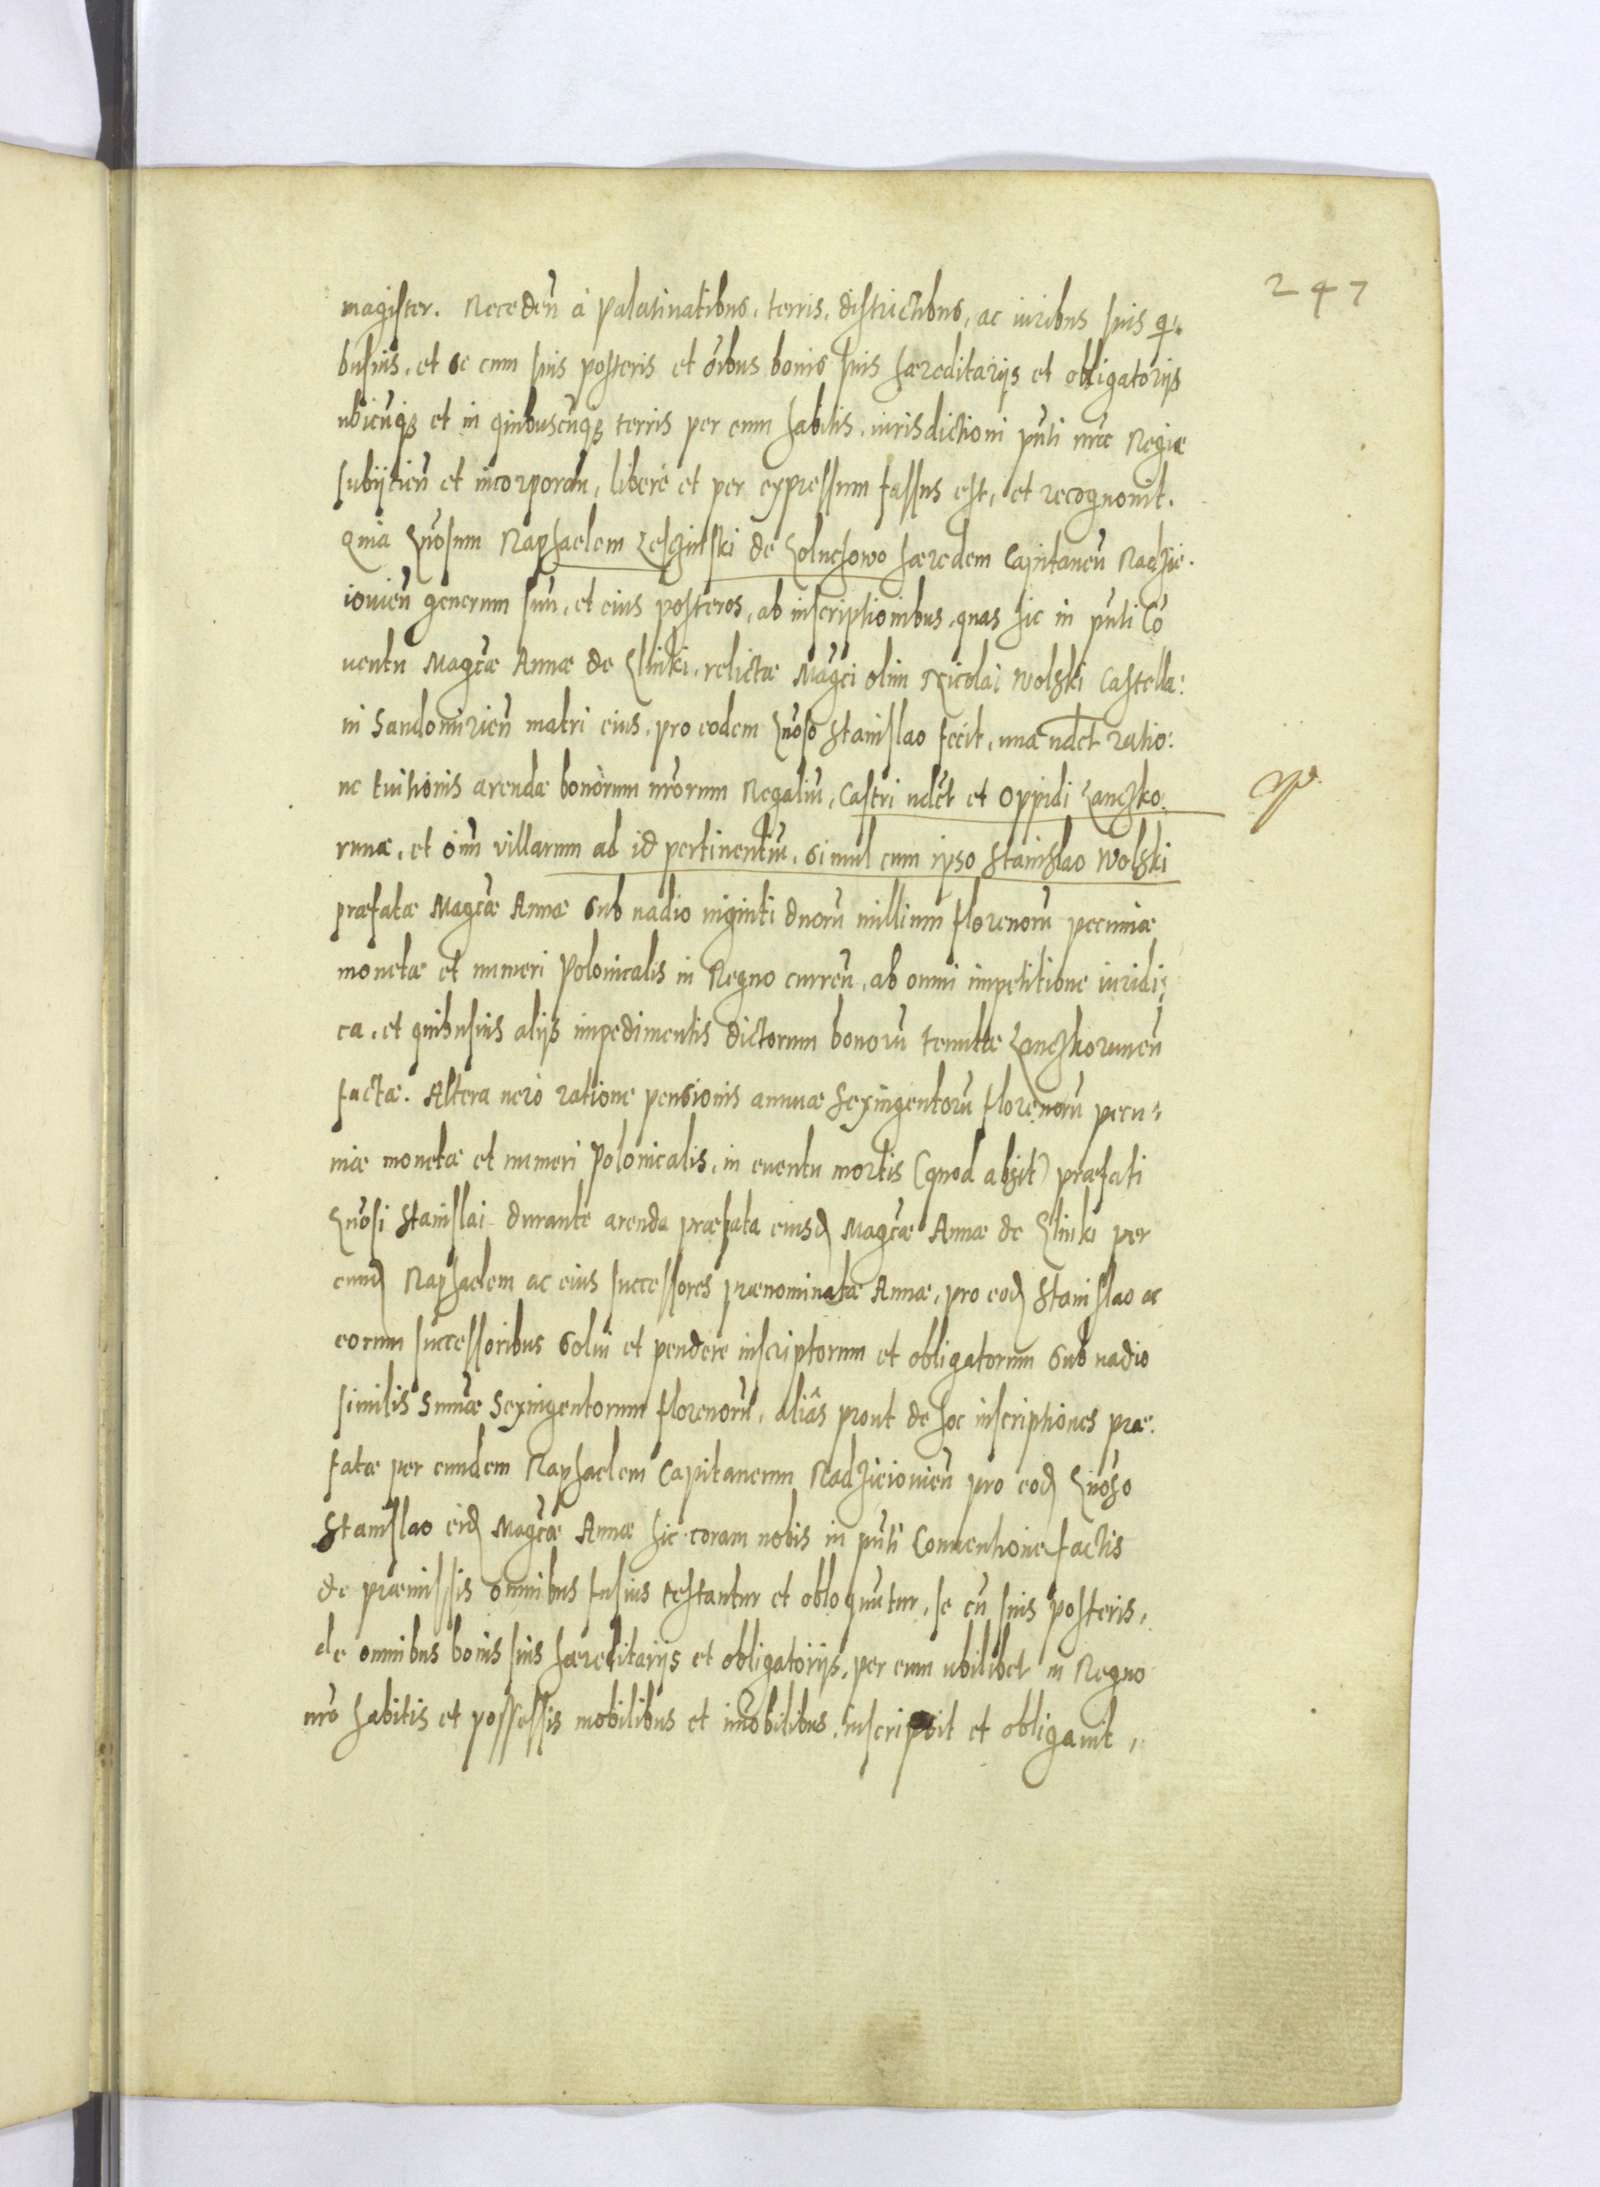 247
magister. Receden̄ à Palatinatibus, terris, districtibus, ac iuribus suis qui=
busuis, et se cum suis posteris et oībus bonis suis hæreditarijs et obligatorijs
ubicūq; et in quibuscūq; terris per eum habitis, iurisdictioni pñti nrāe Regiæ
subijcien̄ et incorporan̄, liberè et per expressum fassus est, et recognouit.
Quia Gñosum Raphaelem Lesczinski de Goluchowo hæredem Capitaneū Radzie=
iouien̄ generum suū, et eius posteros, ab inscriptionibus, quas hic in pñti Cō
uentu Magcæ Annæ de Glinki, relictæ Magci olim Nicolai Wolski Castella=
ni Sandomirien̄ matri eius, pro eodem Gñoso Stanislao fecit, una udēt ratio=
ne tuitionis arendæ bonorum nr̄orum Regaliū, Castri udēt et Oppidi Lanczko=
runæ, et oīm villarum ad id pertinentiū, simul cum ipso Stanislao Wolski
præfatæ Magcæ Annæ sub uadio uiginti duorū millium florenorū pecuniæ
monetæ et numeri Polonicalis in Regno curren̄, ab omni impetitione iuridi=
ca, et quibusuis alijs impedimentis dictorum bonorū tenutæ Lanczkorunen̄
factæ. Altera uerò ratione pensionis annuæ Sexingentorū florenorū pecu=
niæ monetæ et numeri Polonicalis, in euentu mortis (quod absit) præfati
Gñosi Stanislai durante arenda præfata eiusd Magcæ Annæ de Glinki per
eund Raphaelem ac eius successores prænominatæ Annæ, pro eod Stanislao ac
eorum successoribus solui et pendere inscriptorum et obligatorum sub uadio
similis sum̄æ Sexingentorum florenorū, aliâs prout de hoc inscriptiones præ=
fatæ per eundem Raphaelem Capitaneum Radzieiouien̄ pro eod Gñoso
Stanislao eid Magcæ Annæ hic coram nobis in pñti Conuentione factis
de præmissis omnibus fusius testantur et obloquūtur, se cū suis posteris,
de omnibus bonis suis hæreditarijs et obligatorijs, per eum ubilibet in Regno
nr̄o habitis et possessis mobilibus et im̄obilibus inscripsit et obligauit,